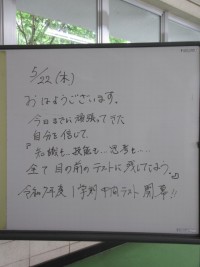 5/22(木)
おはようございます。
今日まで頑張ってきた
自分を信じて
『知識も、技能も、思考も……
全て目の前のテストに残してこよう。』
令和7年度1学期中間テスト開幕!!